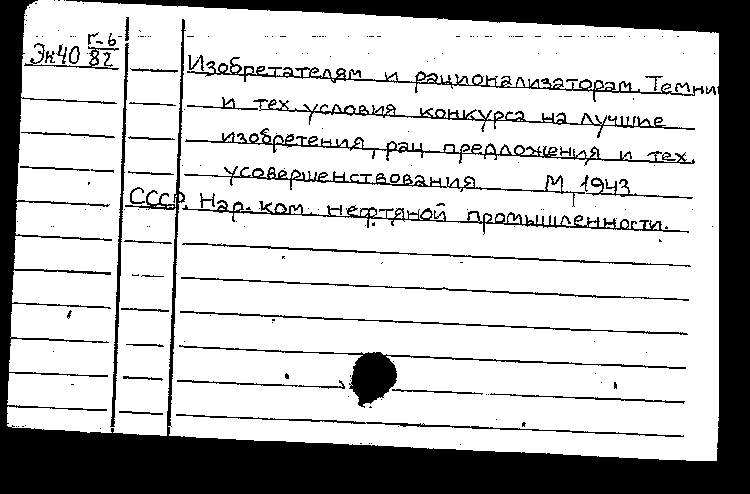 Эк40 Г-6/82
Изобретателям и рационализаторам. Темник
и тех. условия конкурса на лучшие
изобретения, рац. предложения и тех.
усовершенствования. М, 1943.
СССР. Нар. ком. нефтяной промышленности.